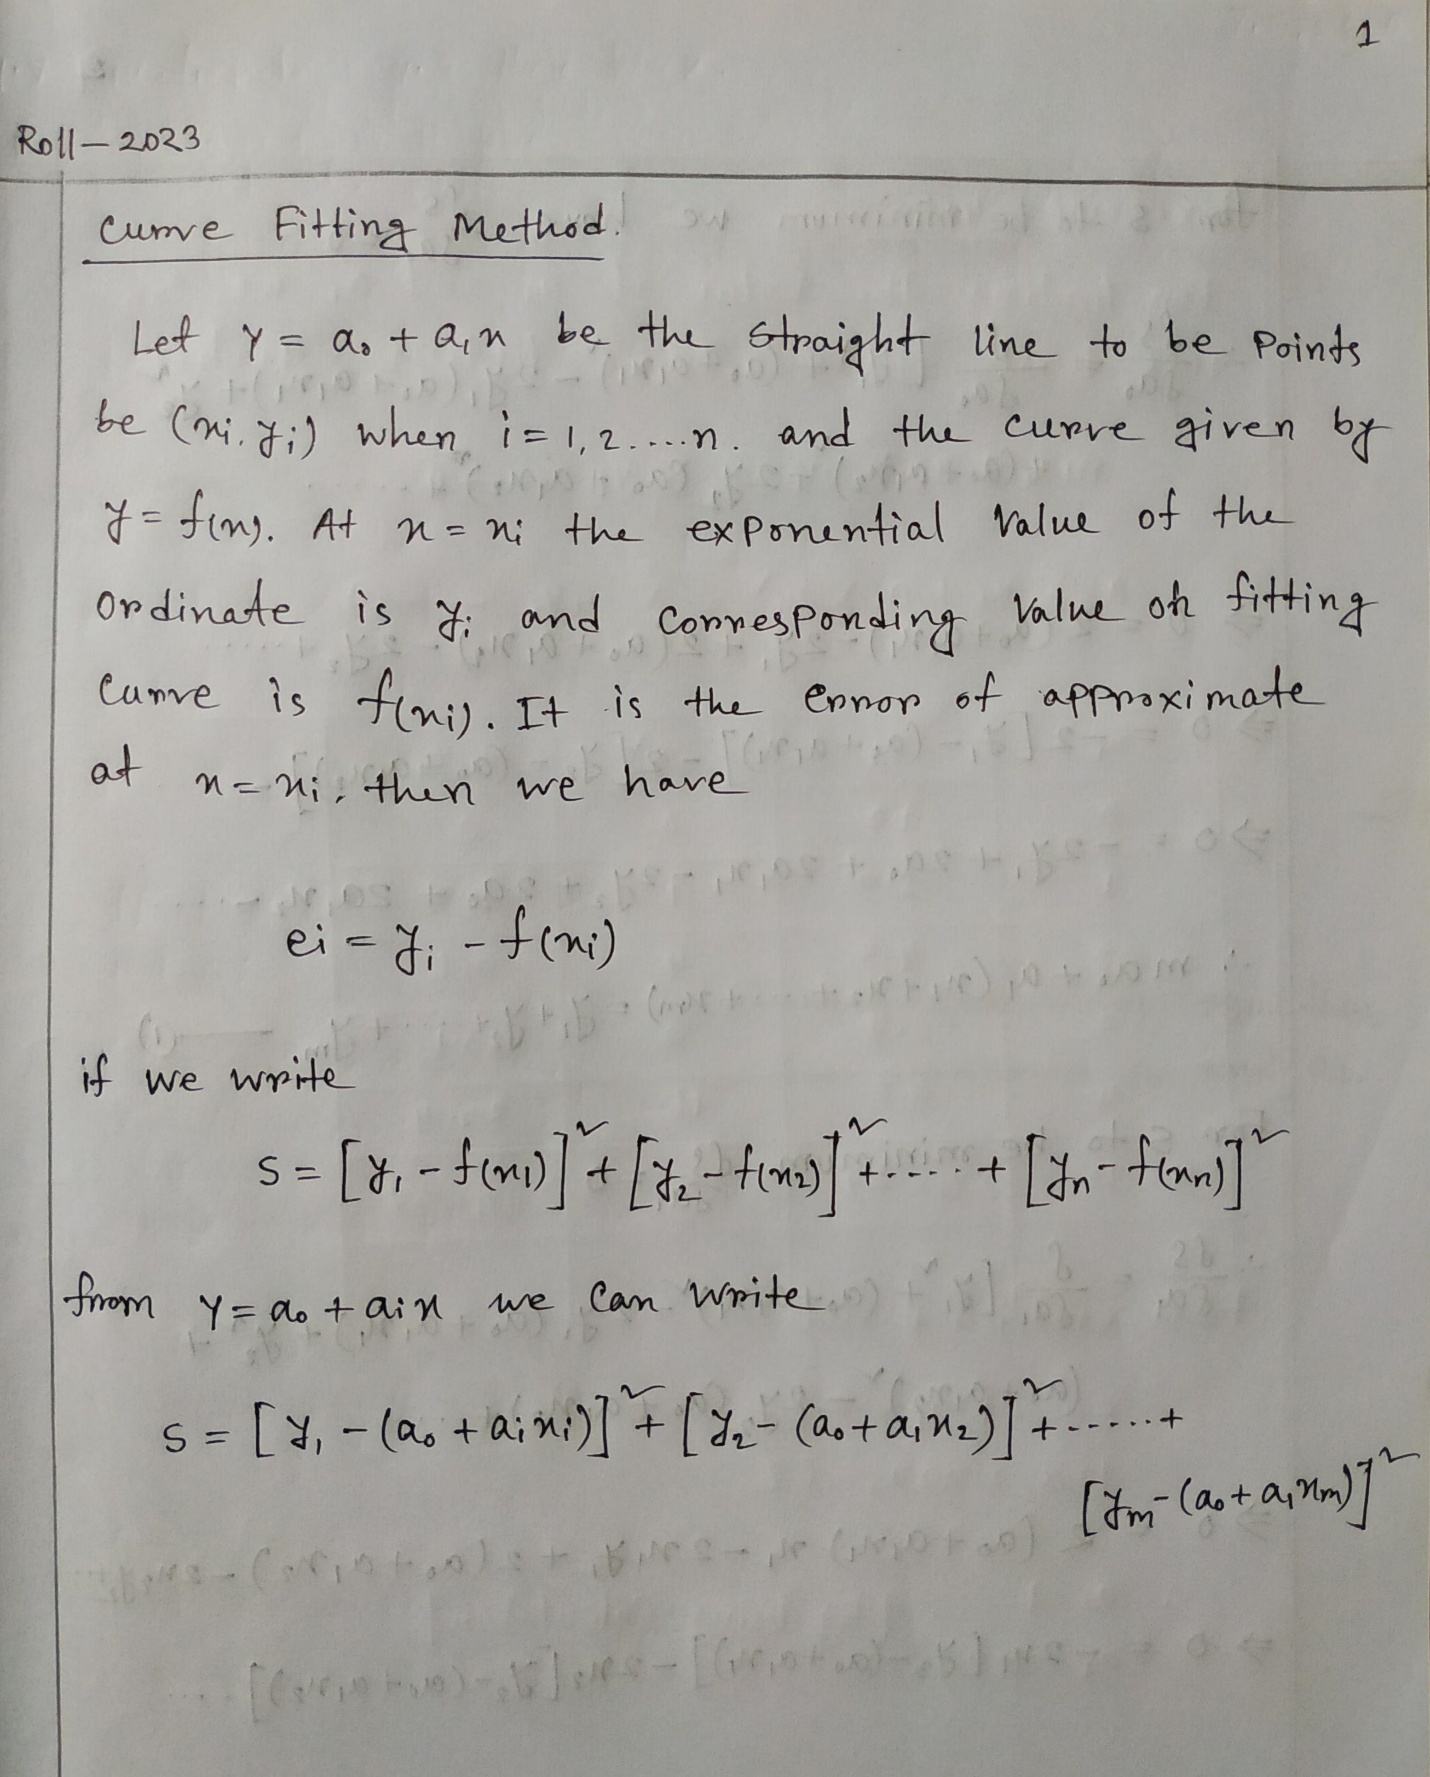 1
Roll – 2023
Curve Fitting Method.
Let Y = a₀ + a₁x be the straight line to be Points
be (xi, yi) when i = 1, 2 ....n. and the curve given by
y = f(x). At x = xi the exponential value of the
ordinate is yi and corresponding value oh fitting
curve is f(xi). It is the error of approximate
at x = xi, then we have
ei = yi - f(xi)
if we write
S = [y₁ - f(x₁)]² + [y₂ - f(x₂)]² + ..... + [yn - f(xn)]²
from Y = a₀ + aix we can write
S = [y₁ - (a₀ + aixi)]² + [y₂ - (a₀ + a₁x₂)]² + ...... +
[ym - (a₀ + a₁xm)]²